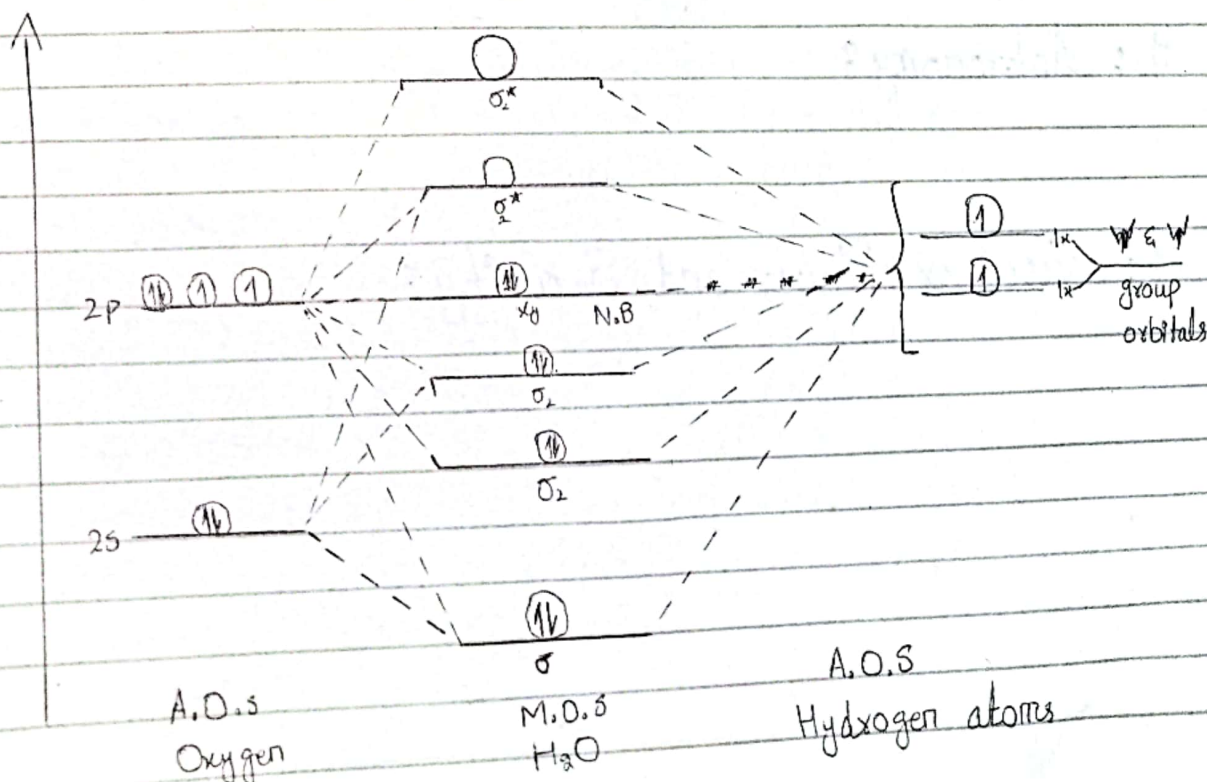 σ*
σ*
2
2p
N.B
σ
σ2
2S
σ
1
1
group
orbitals
A.O.S
Oxygen
M.O.S
H2O
A.O.S
Hydrogen atoms